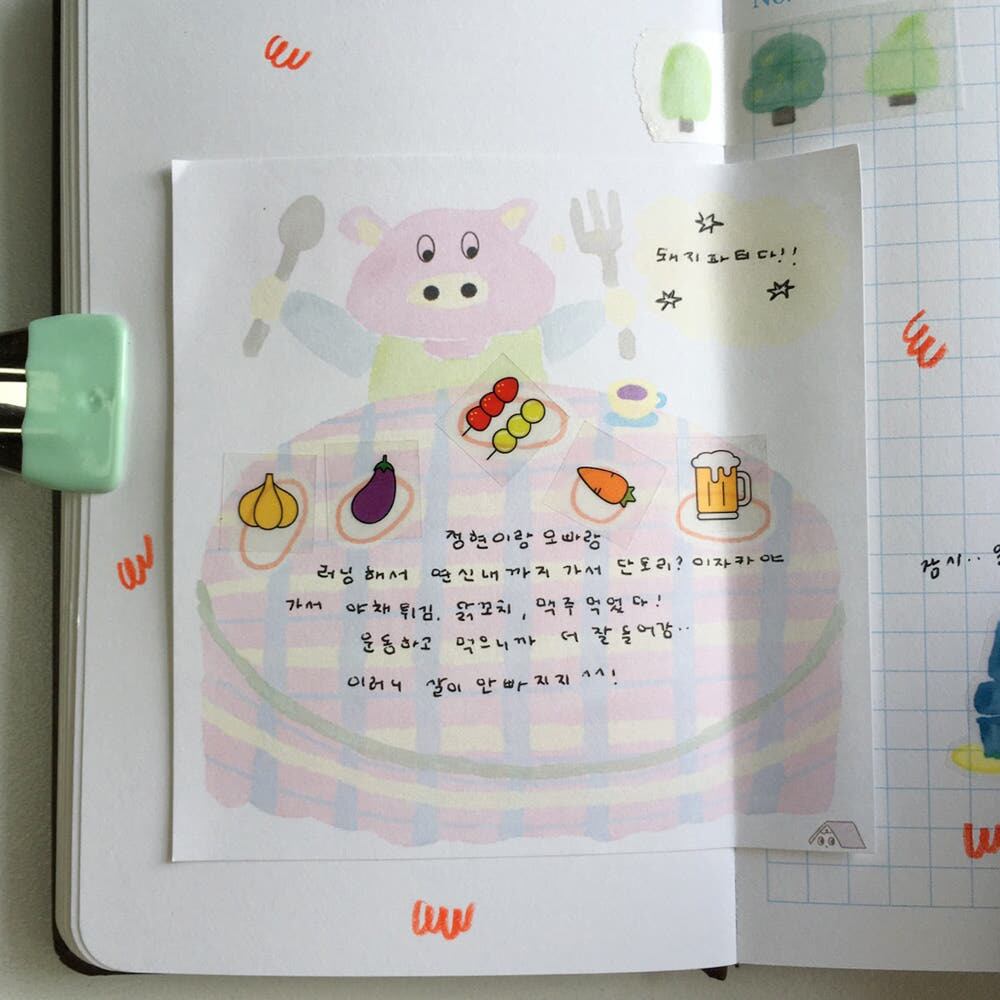 No.
돼지파티다!!
정현이랑 오빠랑
러닝해서 연신내까지 가서 단토리? 이자카야
가서 야채튀김, 닭꼬치, 맥주 먹었다!
운동하고 먹으니까 더 잘 들어감..
이러니 살이 안빠지지 ^^!
잠시..